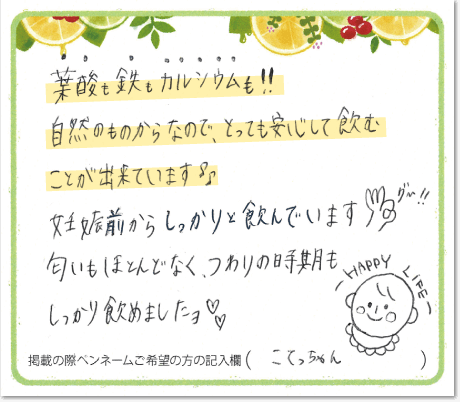 葉酸も鉄もカルシウムも!!
自然のものからなので、とっても安心して飲む
ことが出来ています♪
妊娠前からしっかりと飲んでいます グー!!
匂いもほとんどなく、つわりの時期も
しっかり飲めましたョ♡♡
HAPPY LIFE
掲載の際ペンネームご希望の方の記入欄( こてっちゃん )